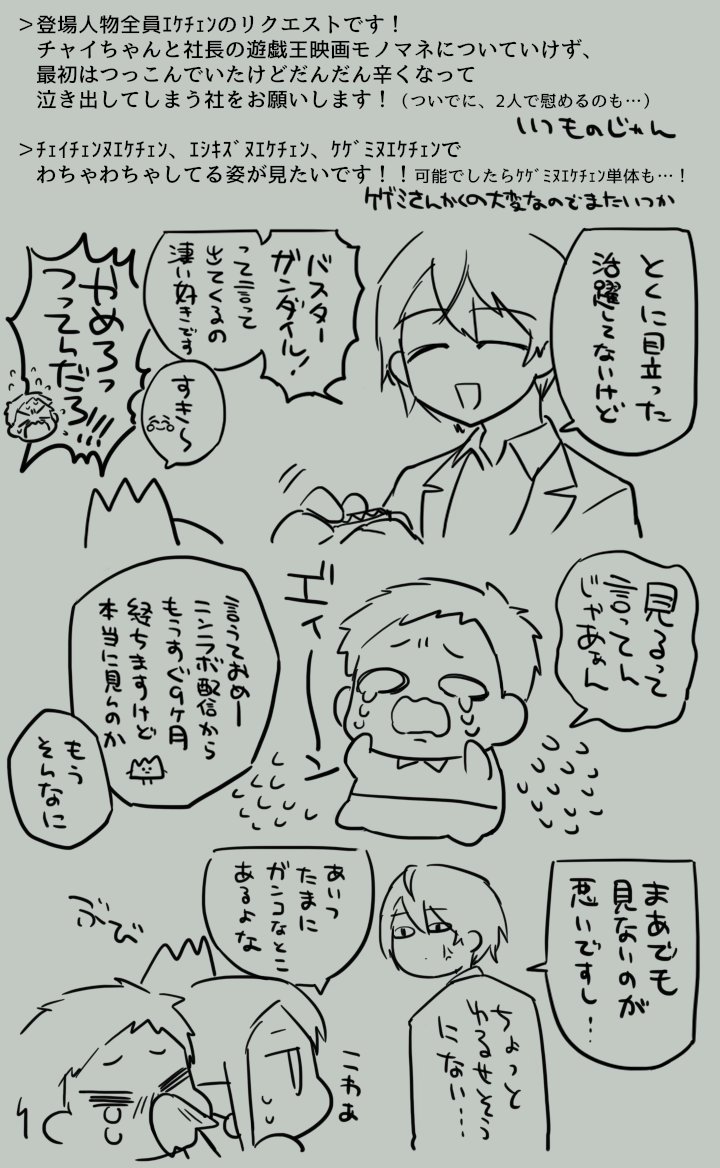 ＞登場人物全員ｴｹﾁｪﾝのリクエストです！
チャイちゃんと社長の遊戯王映画モノマネについていけず、
最初はつっこんでいたけどだんだん辛くなって
泣き出してしまう社をお願いします！（ついでに、2人で慰めるのも…）
いつものじゃん
＞ﾁｪｲﾁｪﾝﾇｴｹﾁｪﾝ、ｴｼｷｽﾞﾇｴｹﾁｪﾝ、ｹｹﾞﾐﾇｴｹﾁｪﾝで
わちゃわちゃしてる姿が見たいです！！可能でしたらｹｹﾞﾐﾇｴｹﾁｪﾝ単体も…！
ケゲミさんかくの大変なのでまたいつか
とくに目立った
活躍してないけど
バスター
ガンダイル！
って言って
出てくるの
凄い好きです
すき〜
やめろっ
つってんだろ!!!
見るって
言ってん
じゃあん
エィーーン
言うておめー
ニンラボ配信から
もうすぐ9ヶ月
経ちますけど
本当に見んのか
もう
そんなに
まあでも
見ないのが
悪いですし…
ちょっと
ゆるせそう
にない…
あいつ
たまに
ガンコなとこ
あるよな
ぶび
こわぁ